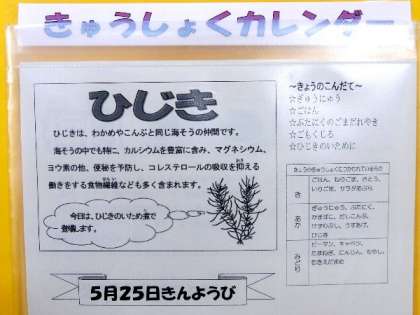 きゅうしょくカレンダー
ひじき
ひじきは、わかめやこんぶと同じ海そうの仲間です。
海そうの中でも特に、カルシウムを豊富に含み、マグネシウム、
ヨウ素の他、便秘を予防し、コレステロールの吸収を抑える
働きをする食物繊維なども多く含まれます。
今日は、ひじきのいため煮で
登場します。
5月25日きんようび
~きょうのこんだて~
☆ぎゅうにゅう
☆ごはん
☆ぶたにくのごまだれやき
☆ごもくじる
☆ひじきのいために
き
ごはん、ねりごま、さとう、
いりごま、サラダあぶら
あか
ぎゅうにゅう、ぶたにく、
かまぼこ、だしこんぶ、
けずりぶし、うすあげ、
ひじき
みどり
ピーマン、キャベツ、
たまねぎ、にんじん、もやし、
むきえだまめ